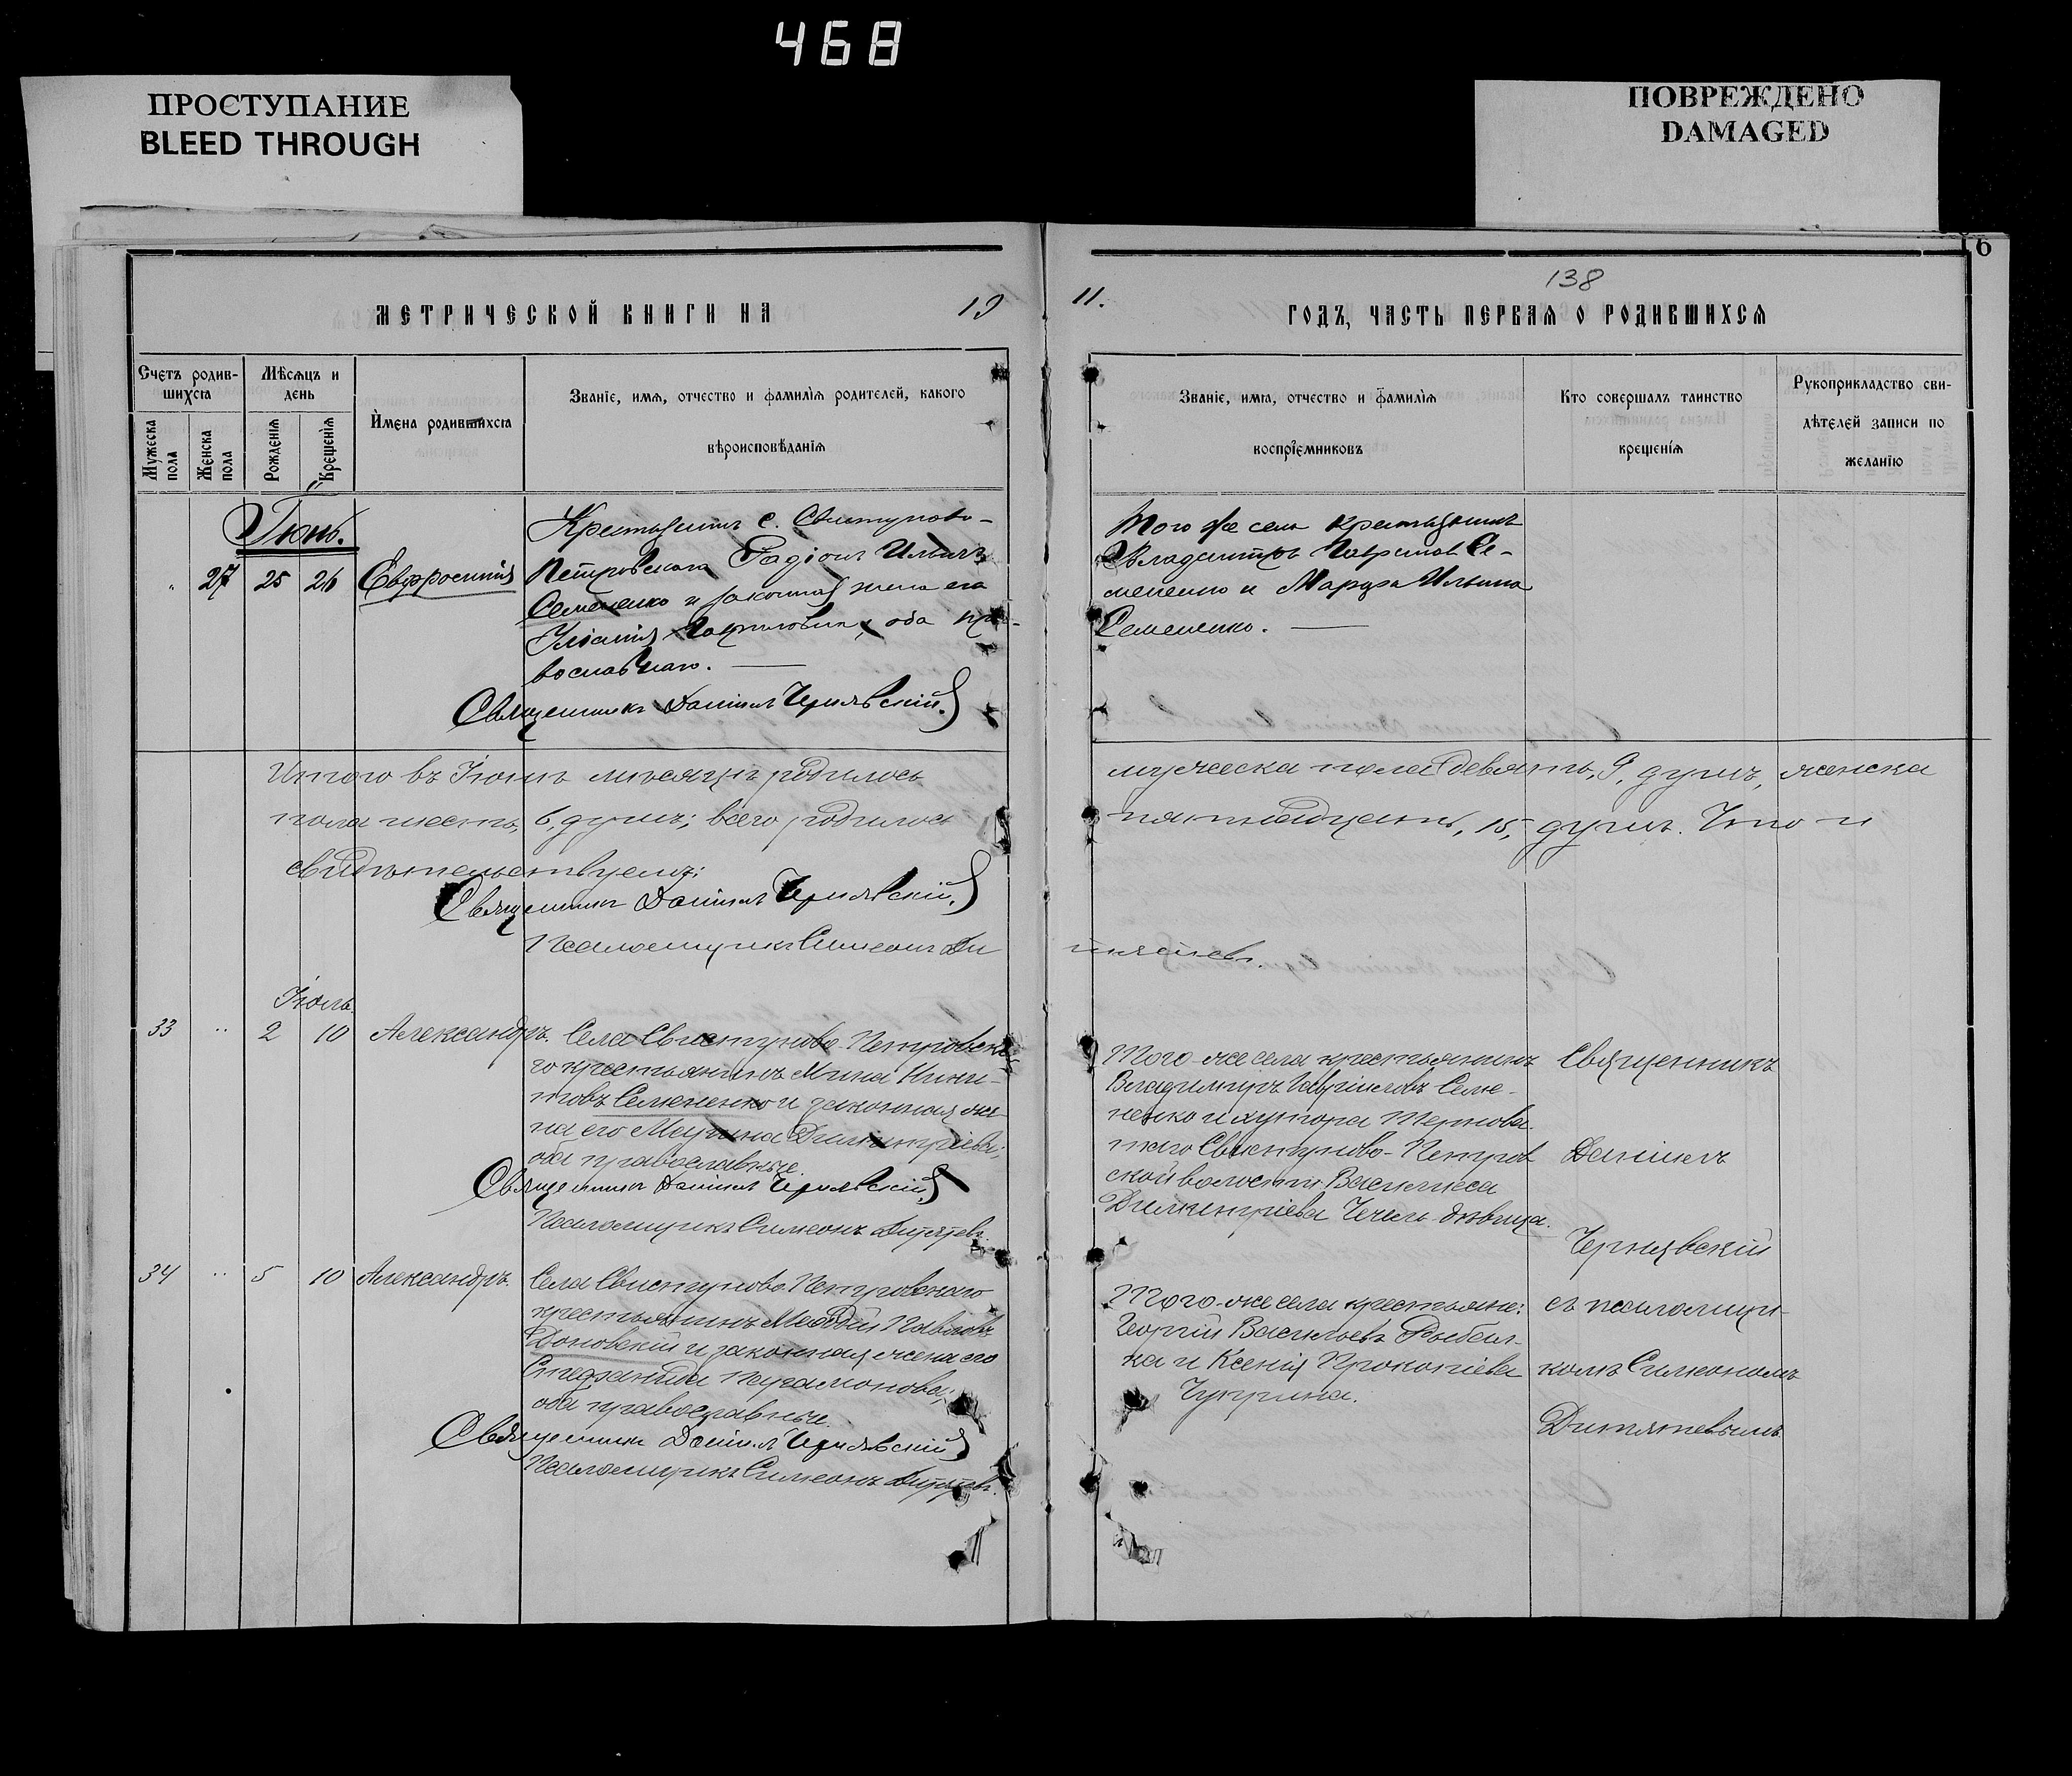 468
ПРОСТУПАНИЕ
BLEED THROUGH
ПОВРЕЖДЕНО
DAMAGED
6
138
МЕТРИЧЕСКОЙ КНИГИ НА 19
11. ГОДЪ, ЧАСТЬ ПЕРВАЯ О РОДИВШИХСЯ
Счетъ родив-
шихся
Мужеска пола
Женска пола
Мѣсяцъ и
день
Рожденія
Крещенія
Имена родившихся
Званіе, имя, отчество и фамилія родителей, какого
вѣроисповѣданія
Званіе, имя, отчество и фамилія
воспріемниковъ
Кто совершалъ таинство
крещенія
Рукоприкладство сви-
дѣтелей записи по
желанію
Іюнь.
27 25 26 Евфросинія
Крестьянинъ с. Свистуново-
Петровскаго Радіонъ Ильинъ
Семененко и законная жена его
Гавриловна, оба пра-
вославнаго.
Священникъ Даніилъ Чернявскій
Того же села крестьянинъ
Владиміръ Гавриловъ Се-
мененко и Марфа Ильина
Семененко.
Итого въ Іюнѣ мѣсяцѣ родилось
мужеска пола девять, 9, душъ, женска
пола шесть, 6, душъ; всего родилось
пятнадцать, 15, душъ. Что и
свидѣтельствуемъ:
Священникъ Даніилъ Чернявскій
Псаломщикъ Симеонъ Ди
тятевъ.
Іюль.
33 " 2 10 Александръ.
Села Свистуново-Петровска-
го крестьянинъ Мина Ники-
товъ Семененко и законная же-
на его Марина Димитріева;
оба православные.
Священникъ Даніилъ Чернявскій
Псаломщикъ Симеонъ Дитятевъ.
Того-же села крестьянинъ
Владимиръ Гавриловъ Семе-
ненко и хутора Тернова-
таго Свистуново-Петров
ской волости Василиса
Димитріева Чечель девица.
Священникъ
Даніилъ
Чернявскій
съ псаломщи-
комъ Симеономъ
Дитятевымъ.
34 " 5 10 Александръ.
Села Свистуново-Петровскаго
крестьянинъ Меѳодій Павловъ
Доновскій и законная жена его
Стефанида
оба православные.
Священникъ Даніилъ Чернявскій
Псаломщикъ Симеонъ Дитятевъ.
Того-же села крестьяне:
Георгій Васильевъ
и Ксенія Прокопіева